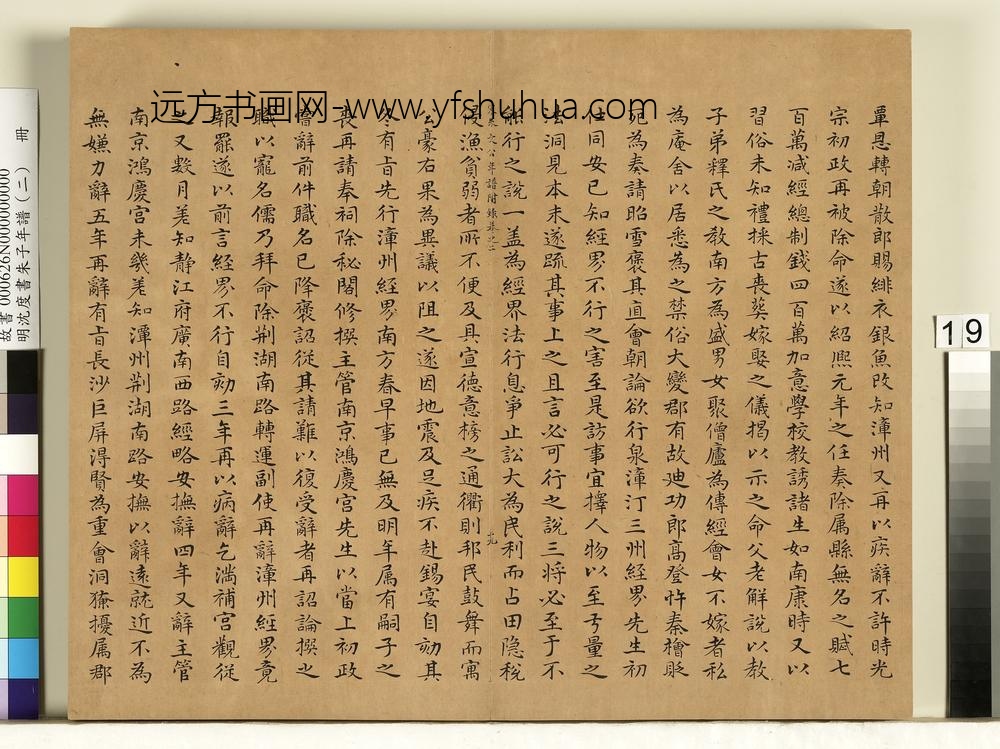 覃恩轉朝散郎賜緋衣銀魚改知漳州又再以疾辭不許時光
宗初政再被除命遂以紹熙元年之任奏除属縣無名之賦七
百萬减經總制錢四百萬加意學校教誘諸生如南康時又以
習俗未知禮採古喪葬嫁娶之儀揭以示之命父老解說以教
子弟釋氏之教南方為盛男女聚僧廬為傳經會女不嫁者私
為庵舍以居悉為之禁俗大變郡有故迪功郎高登忤秦檜貶
死為奏請昭雪褒其直會朝論欲行泉漳汀三州經界先生初
任同安已知經界不行之害至是訪事宜擇人物以至弓量之
法洞見本末遂疏其事上之且言必可行之說三將必至于不
能行之說一盖為經界法行息爭止訟大為民利而占田隐稅
文公年譜附録卷之二
十九
侵漁貧弱者所不便及具宣德意榜之通衢則邦民鼓舞而寓
公豪右果為異議以阻之遂因地震及足疾不赴錫宴自劾其
冬有旨先行漳州經界南方春早事已無及明年属有嗣子之
喪再請奉祠除秘閣修撰主管南京鴻慶宮先生以當上初政
嘗辭前件職名已降褒詔從其請難以復受辭者再詔論撰之
職以寵名儒乃拜命除荆湖南路轉運副使再辭漳州經界竟
報罷遂以前言經界不行自劾三年再以病辭乞滿補宮觀從
之又數月差知静江府廣南西路經略安撫辭四年又辭主管
南京鴻慶宮未幾差知潭州荆湖南路安撫以辭遠就近不為
無嫌力辭五年再辭有旨長沙巨屏得賢為重會洞獠擾属郡
远方书画网-www.yfshuhua.com
19
故書 000626N000000000
明沈度書朱子年譜(二) 冊